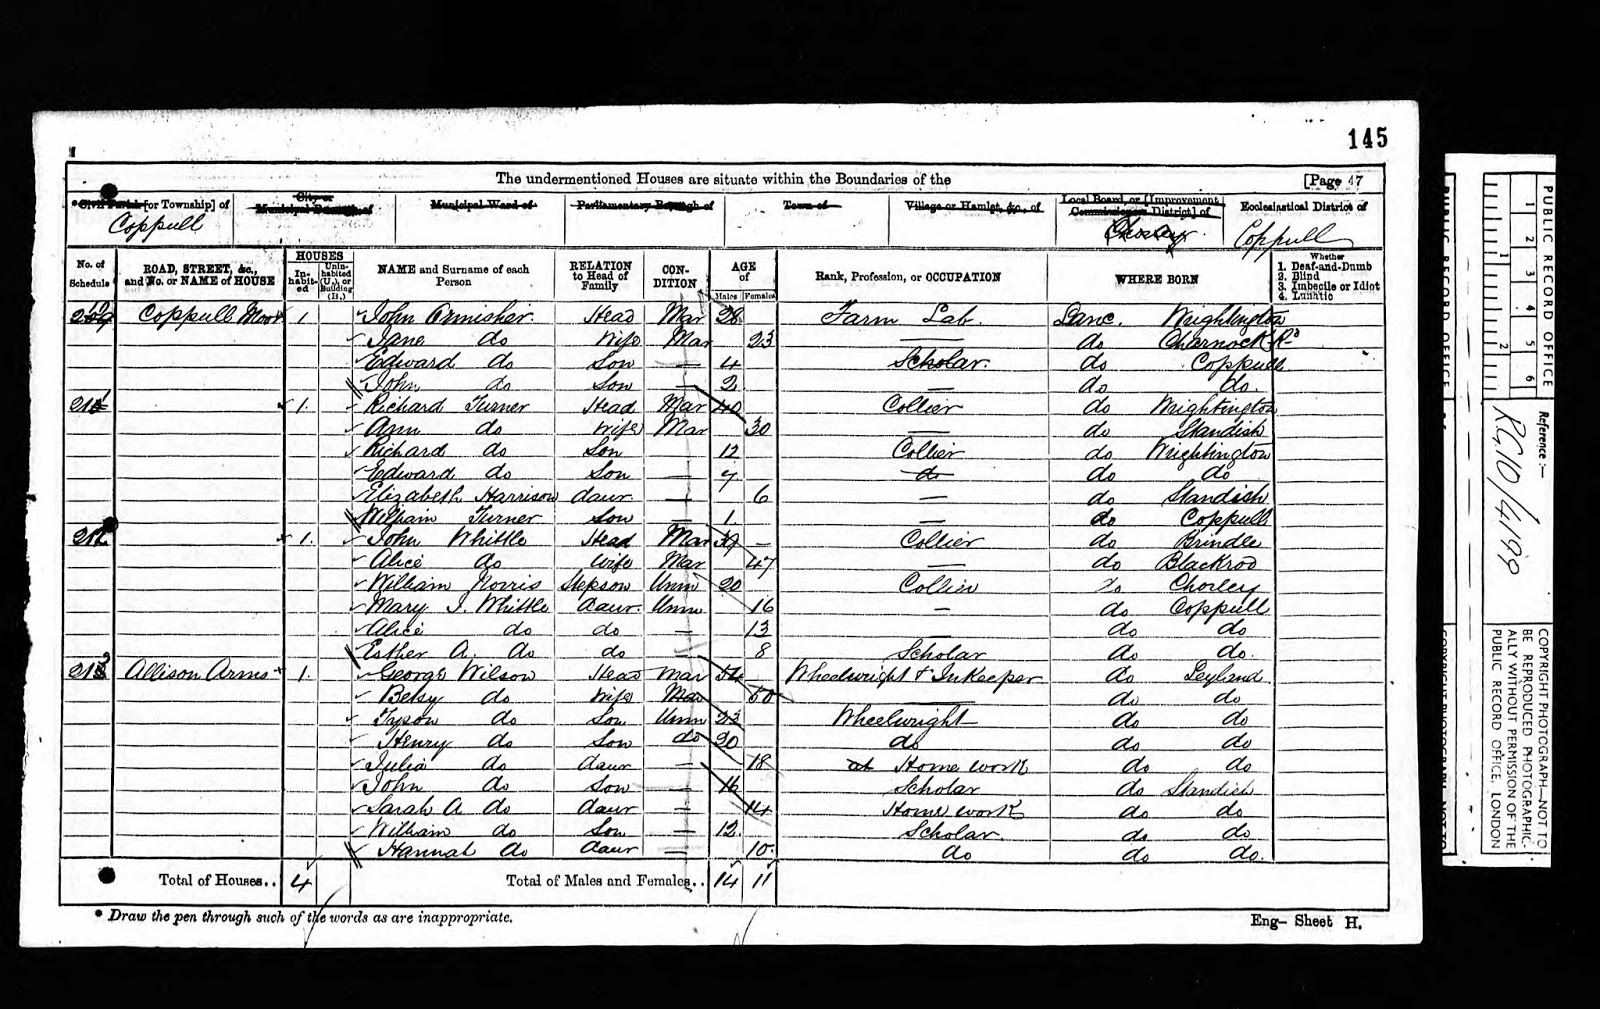 145
The undermentioned Houses are situate within the Boundaries of the [Page 47
* Civil Parish [or Township] of City or Municipal Borough of Municipal Ward of Parliamentary Borough of Town of Village or Hamlet, &c., of Local Board, or [Improvement Commissioners District] of Ecclesiastical District of
Coppull Chorley Coppull
No. of Schedule ROAD, STREET, &c., and No. or NAME of HOUSE HOUSES Inhabited Uninhabited (U.), or Building (B.) NAME and Surname of each Person RELATION to Head of Family CONDITION AGE of Males Females Rank, Profession, or OCCUPATION WHERE BORN Whether 1. Deaf-and-Dumb 2. Blind 3. Imbecile or Idiot 4. Lunatic
Coppull Moor 1 John Ormisher Head Mar 28 Farm Lab. Lanc. Wrightington
Jane do Wife Mar 23 — do Charnock Rd
Edward do Son — 4 Scholar. do Coppull
John do Son — 2 — do do.
211 1. Richard Turner Head Mar 40 Collier do Wrightington
Ann do Wife Mar 30 — do Standish
Richard do Son 12 Collier do Wrightington
Edward do Son — 7 do do do
Elizabeth Harrison daur — 6 — do Standish
William Turner Son — 1. — do Coppull
212 1. John Whittle Head Mar — Collier do Brindle
Alice do Wife Mar 47 — do Blackrod
William Norris Stepson Unm 20 Collier do Chorley
Mary J. Whittle daur Unm 16 — do Coppull
Alice do do — 13 — do do
Esther A. do do — 8 Scholar do do.
213 Allison Arms 1. George Wilson Head Mar 54 Wheelwright & InKeeper do Leyland
Betsy do Wife Mar 50 — do do
Tyson do Son Unm 23 Wheelwright do do
Henry do Son do 20 do do do
Julia do daur — 18 at Home work do do
John do Son — 16 Scholar do Standish
Sarah A do daur — 14 Home work do do
William do Son — 12 Scholar. do do
Hannah do daur — 10. do do do.
Total of Houses.. 4 Total of Males and Females.. 14 11
* Draw the pen through such of the words as are inappropriate.
Eng— Sheet H.
PUBLIC RECORD OFFICE
1 2 3 4 5 6
1 2
Reference :—
RG10/4199
COPYRIGHT PHOTOGRAPH—NOT TO
BE REPRODUCED PHOTOGRAPHIC-
ALLY WITHOUT PERMISSION OF THE
PUBLIC RECORD OFFICE, LONDON
PUBLIC RECORD OFFICE